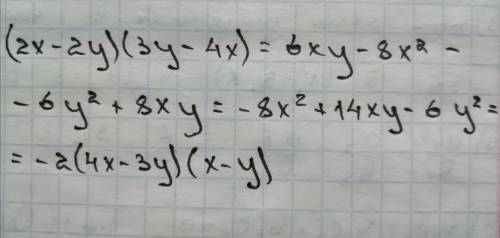 (2x-2y)(3y-4x) = 6xy-8x² -
- 6y² + 8xy = -8x² + 14xy - 6y² =
= -2(4x-3y)(x-y)